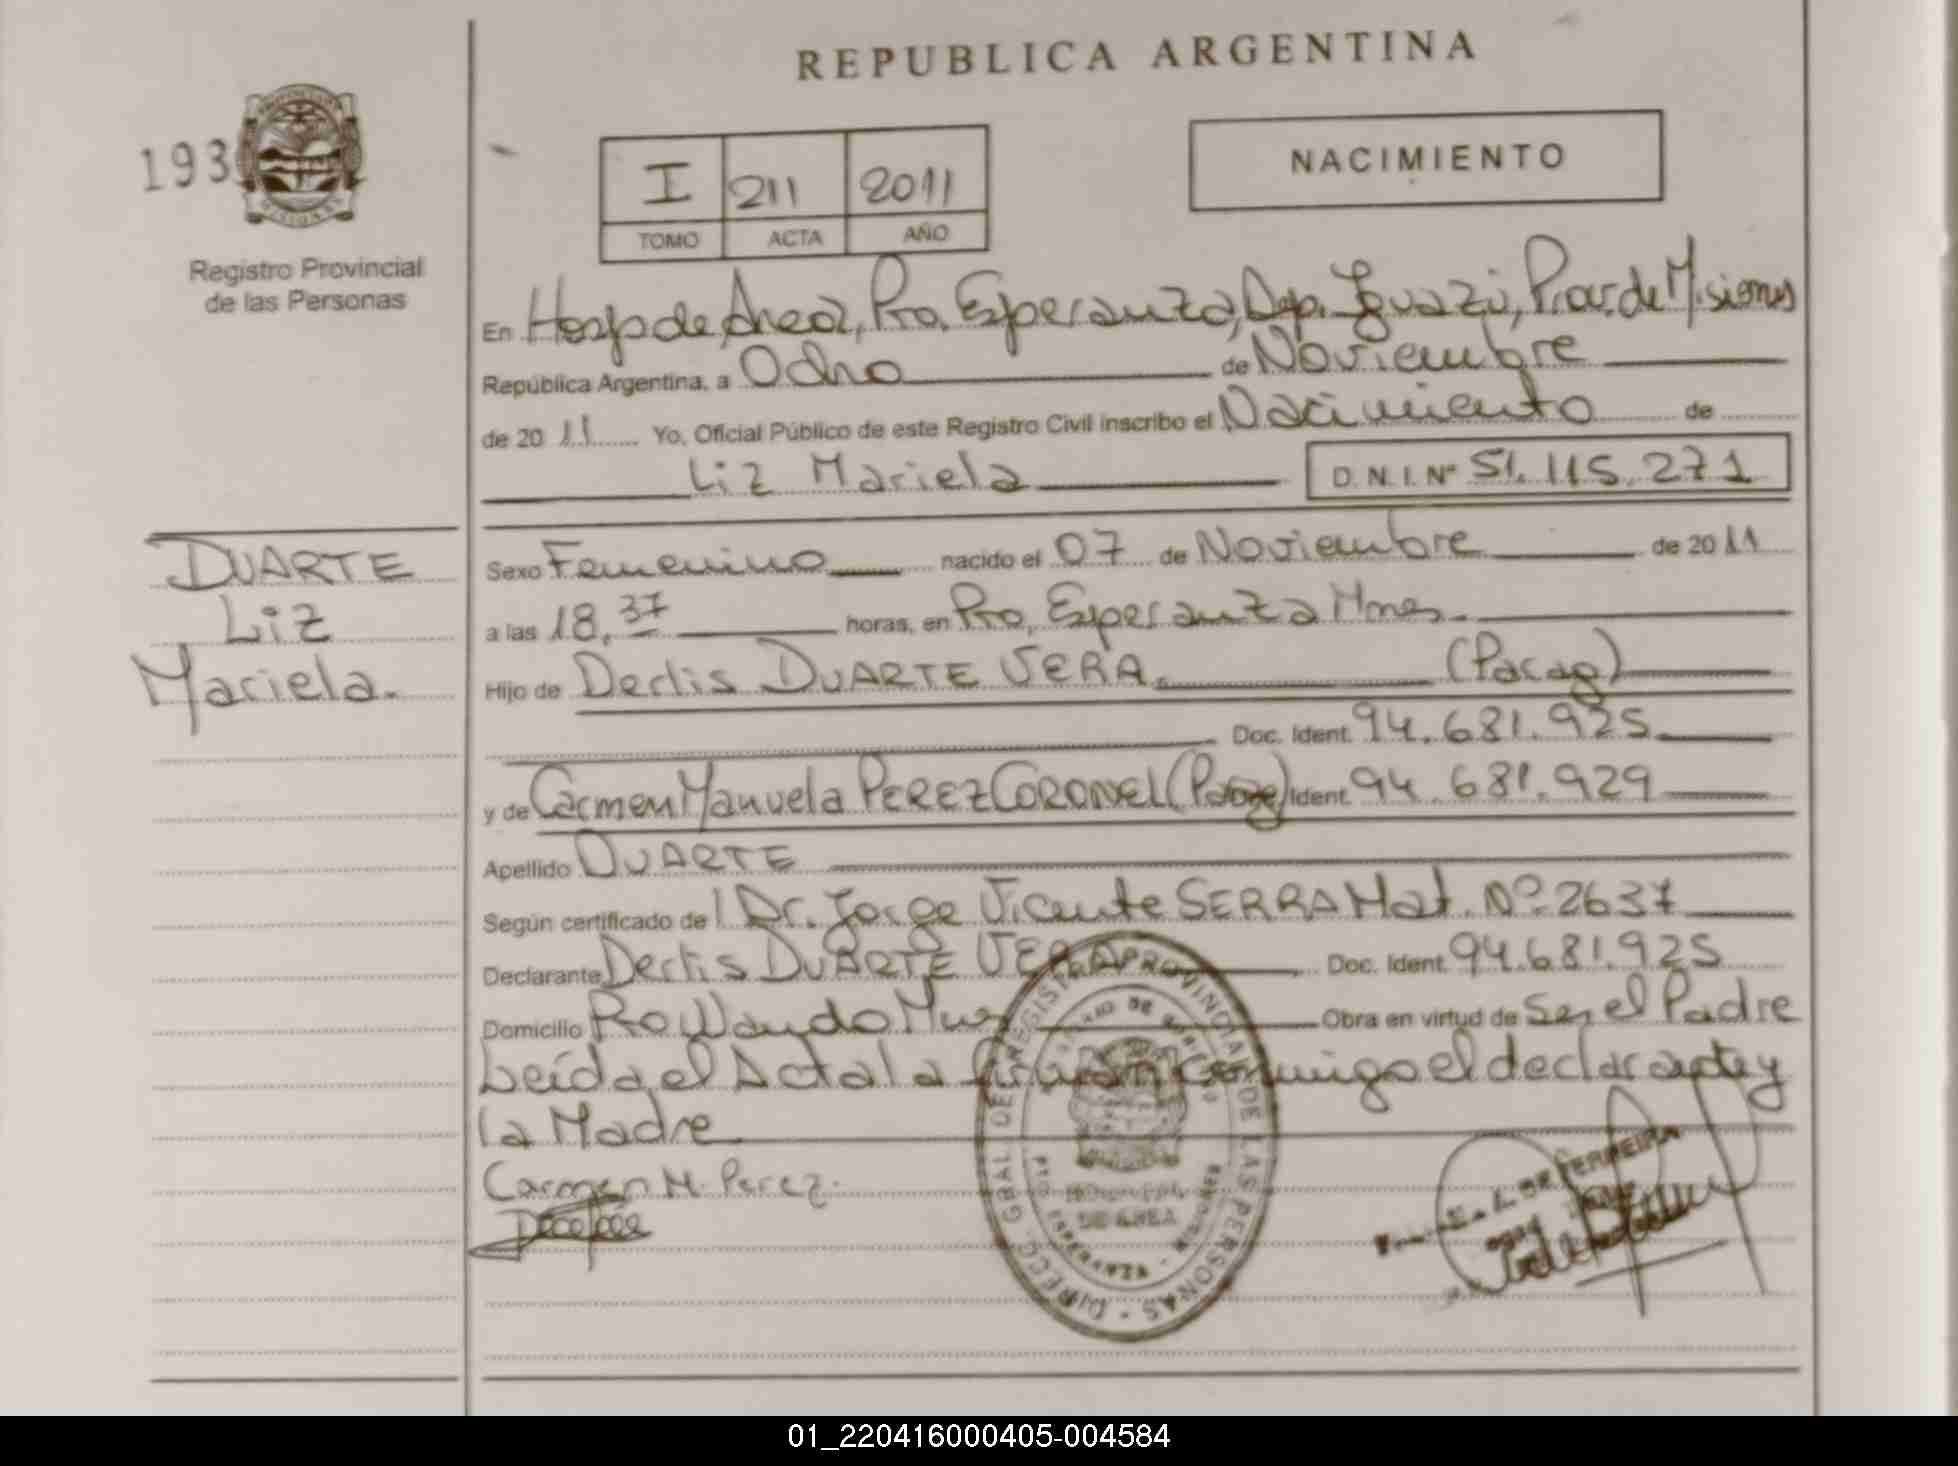 REPUBLICA ARGENTINA
193
Registro Provincial
de las Personas
I 211 2011
TOMO ACTA AÑO
NACIMIENTO
En Hosp de Area, Pto. Esperanza, Dep. Iguazú, Prov. de Misiones
República Argentina, a Ocho de Noviembre
de 2011 Yo, Oficial Público de este Registro Civil inscribo el Nacimiento de
Liz Mariela D.N.I. Nº 51.115.271
DUARTE
Liz
Mariela.
Sexo Femenino nacido el 07 de Noviembre de 2011
a las 18,37 horas, en Pto, Esperanza Mnes.
Hijo de Derlis DUARTE VERA. (Parag)
Doc. Ident. 94.681.925
y de Carmen Manuela PEREZ CORONEL Ident. 94.681.929
Apellido DUARTE
Según certificado de Dr. Jorge Vicente SERRA Mat. Nº 2637
Declarante Derlis DUARTE VERA Doc. Ident. 94.681.925
Domicilio Obra en virtud de Ser el Padre
Leída el Acta la firman conmigo el declarante y
la Madre
Carmen M. Perez.
DIRECC. GRAL. DE REGISTRO PROVINCIAL DE LAS PERSONAS
DE AREA
PTO. ESPERANZA
FERREIRA
01_220416000405-004584